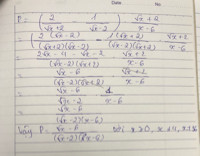 Date No
P = ( 2/(√x+2) - 1/(√x-2) ) · (√x+2)/(x-6)
= ( 2(√x-2)/((√x+2)(√x-2)) - (√x+2)/((√x-2)(√x+2)) ) · (√x+2)/(x-6)
= (2√x - 4 - √x - 2)/((√x-2)(√x+2)) · (√x+2)/(x-6)
= (√x-6)/((√x-2)(√x+2)) · (√x+2)/(x-6)
= (√x-6)/(√x-2) · 1/(x-6)
= (√x-6)/((√x-2)(x-6))
Vậy P = (√x-6)/((√x-2)(x-6)) với x≥0, x≠4,